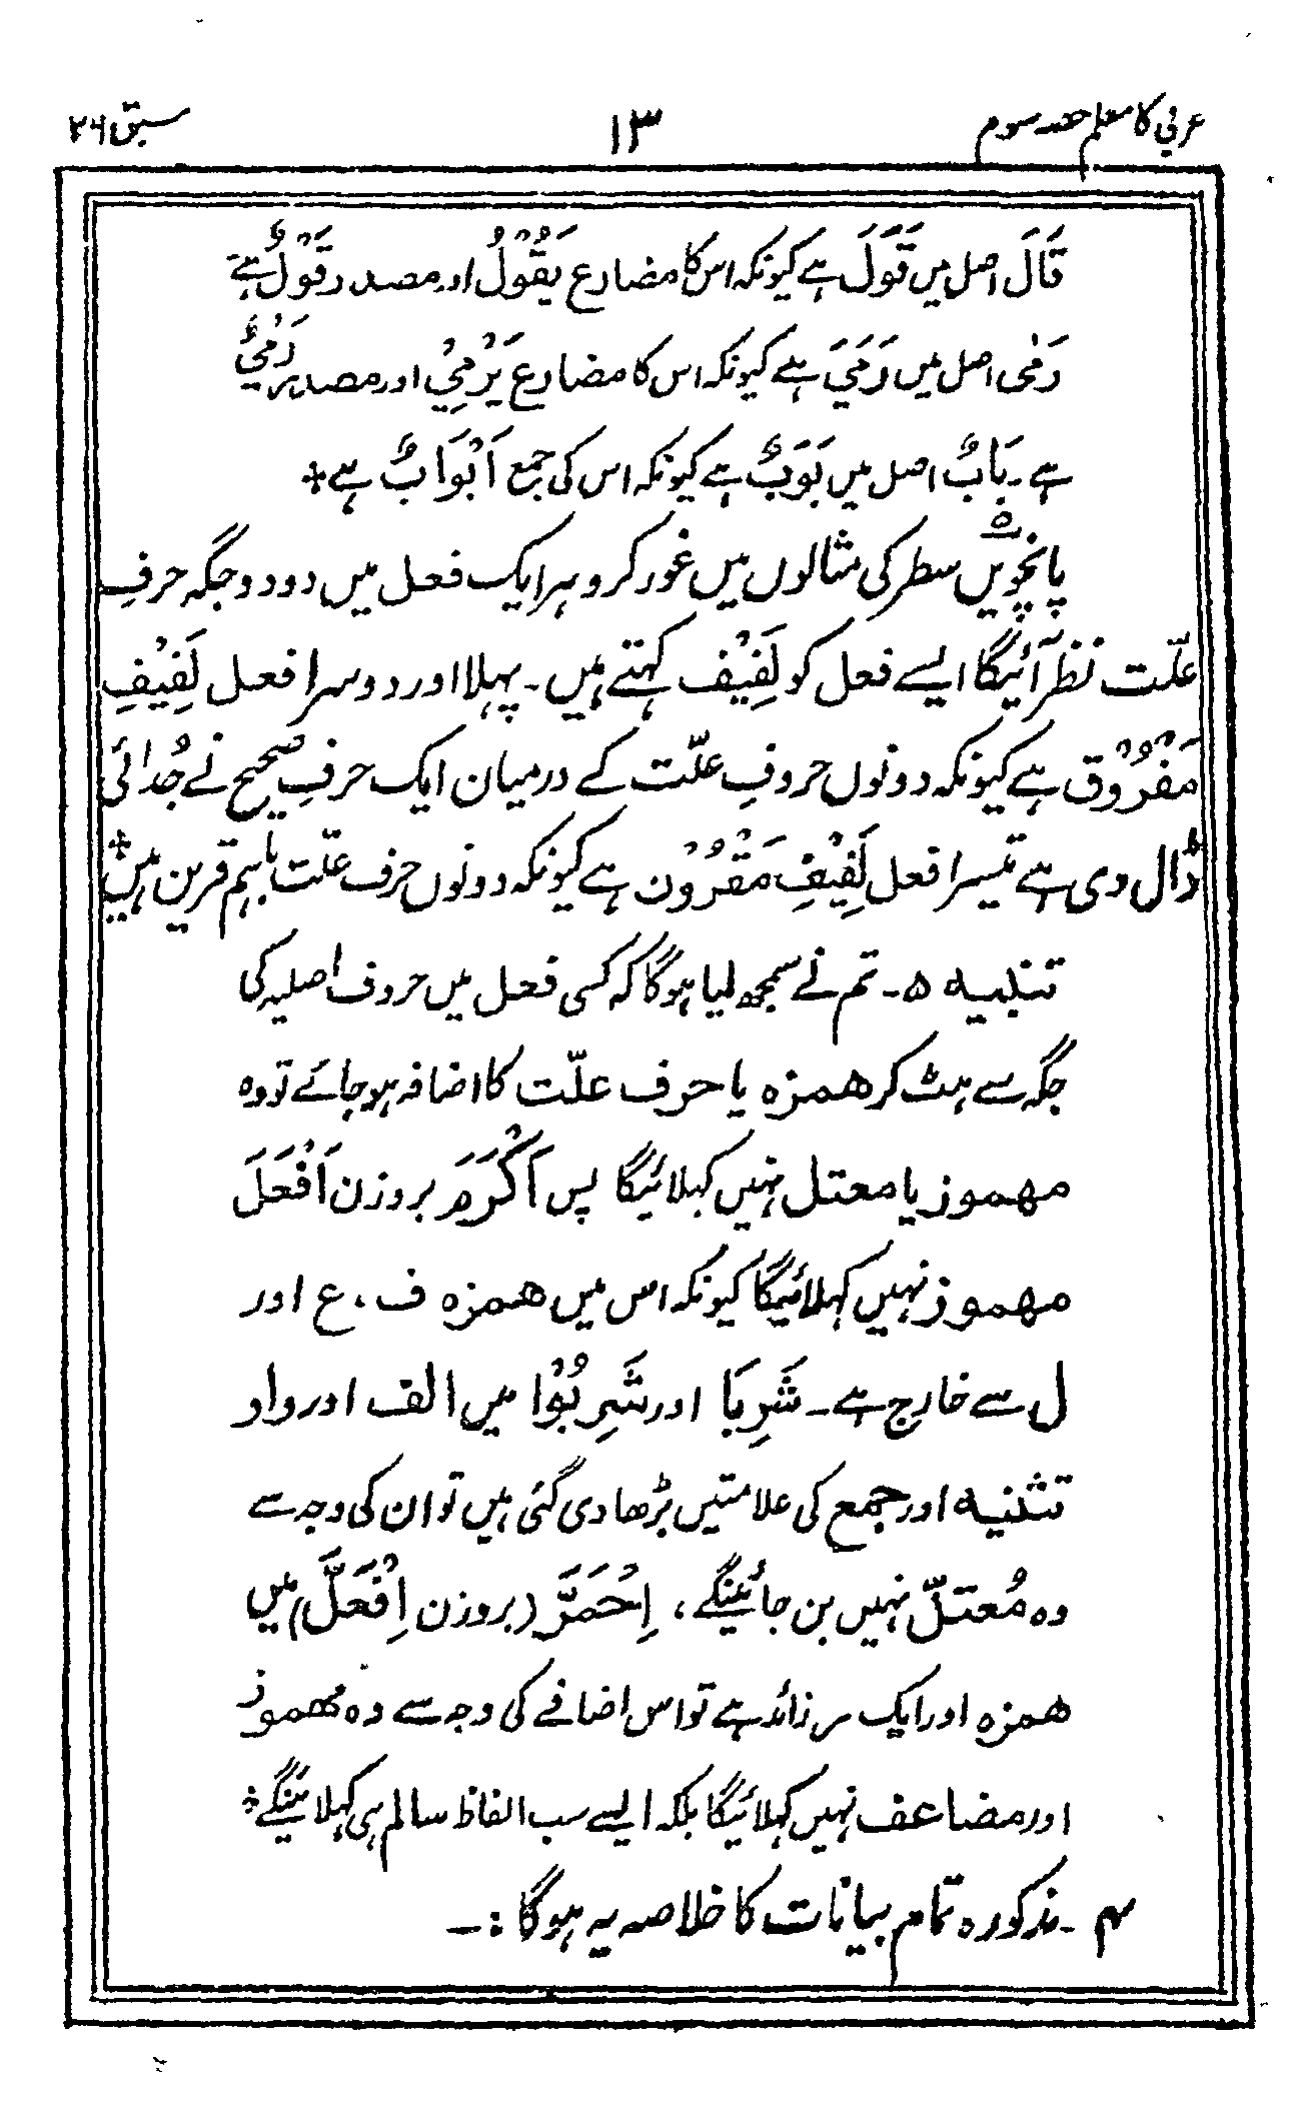 عربی کا معلم حصہ سوم
۱۳
سبق ۲۶
قَالَ اصل میں قَوَلَ ہے کیونکہ اس کا مضارع یَقُوْلُ اور مصدر قَوْلٌ ہے
رَمٰی اصل میں رَمَیَ ہے کیونکہ اس کا مضارع یَرْمِیْ اور مصدر رَمْیٌ
ہے۔ بَابٌ اصل میں بَوَبٌ ہے کیونکہ اس کی جمع اَبْوَابٌ ہے +
پانچویں سطر کی مثالوں میں غور کرو ہر ایک فعل میں دو دو جگہ حرفِ
علّت نظر آئیگا ایسے فعل کو لَفِیْف کہتے ہیں۔ پہلا اور دوسرا فعل لَفِیْفِ
مَفْرُوْق ہے کیونکہ دونوں حروفِ علّت کے درمیان ایک حرفِ صحیح نے جُدائی
ڈال دی ہے تیسرا فعل لَفِیْفِ مَقْرُوْن ہے کیونکہ دونوں حرف علّت باہم قرین ہیں +
تنبیہ ۵۔ تم نے سمجھ لیا ہوگا کہ کسی فعل میں حروف اصلیہ کی
جگہ سے ہٹ کر ھمزہ یا حرف علّت کا اضافہ ہو جائے تو وہ
مہموز یا معتل نہیں کہلائیگا پس اَکْرَمَ بروزن اَفْعَلَ
مہموز نہیں کہلائیگا کیونکہ اس میں ھمزہ ف، ع اور
ل سے خارج ہے۔ شَرِبَا اور شَرِبُوْا میں الف اور واو
تثنیہ اور جمع کی علامتیں بڑھا دی گئی ہیں تو ان کی وجہ سے
وہ مُعتلّ نہیں بن جائینگے، اِحْمَرَّ (بروزن اِفْعَلَّ) میں
ھمزہ اور ایک ر زائد ہے تو اس اضافے کی وجہ سے وہ مھموز
اور مضاعف نہیں کہلائیگا بلکہ ایسے سب الفاظ سالم ہی کہلائینگے +
۴ - مذکورہ تمام بیانات کا خلاصہ یہ ہوگا :-